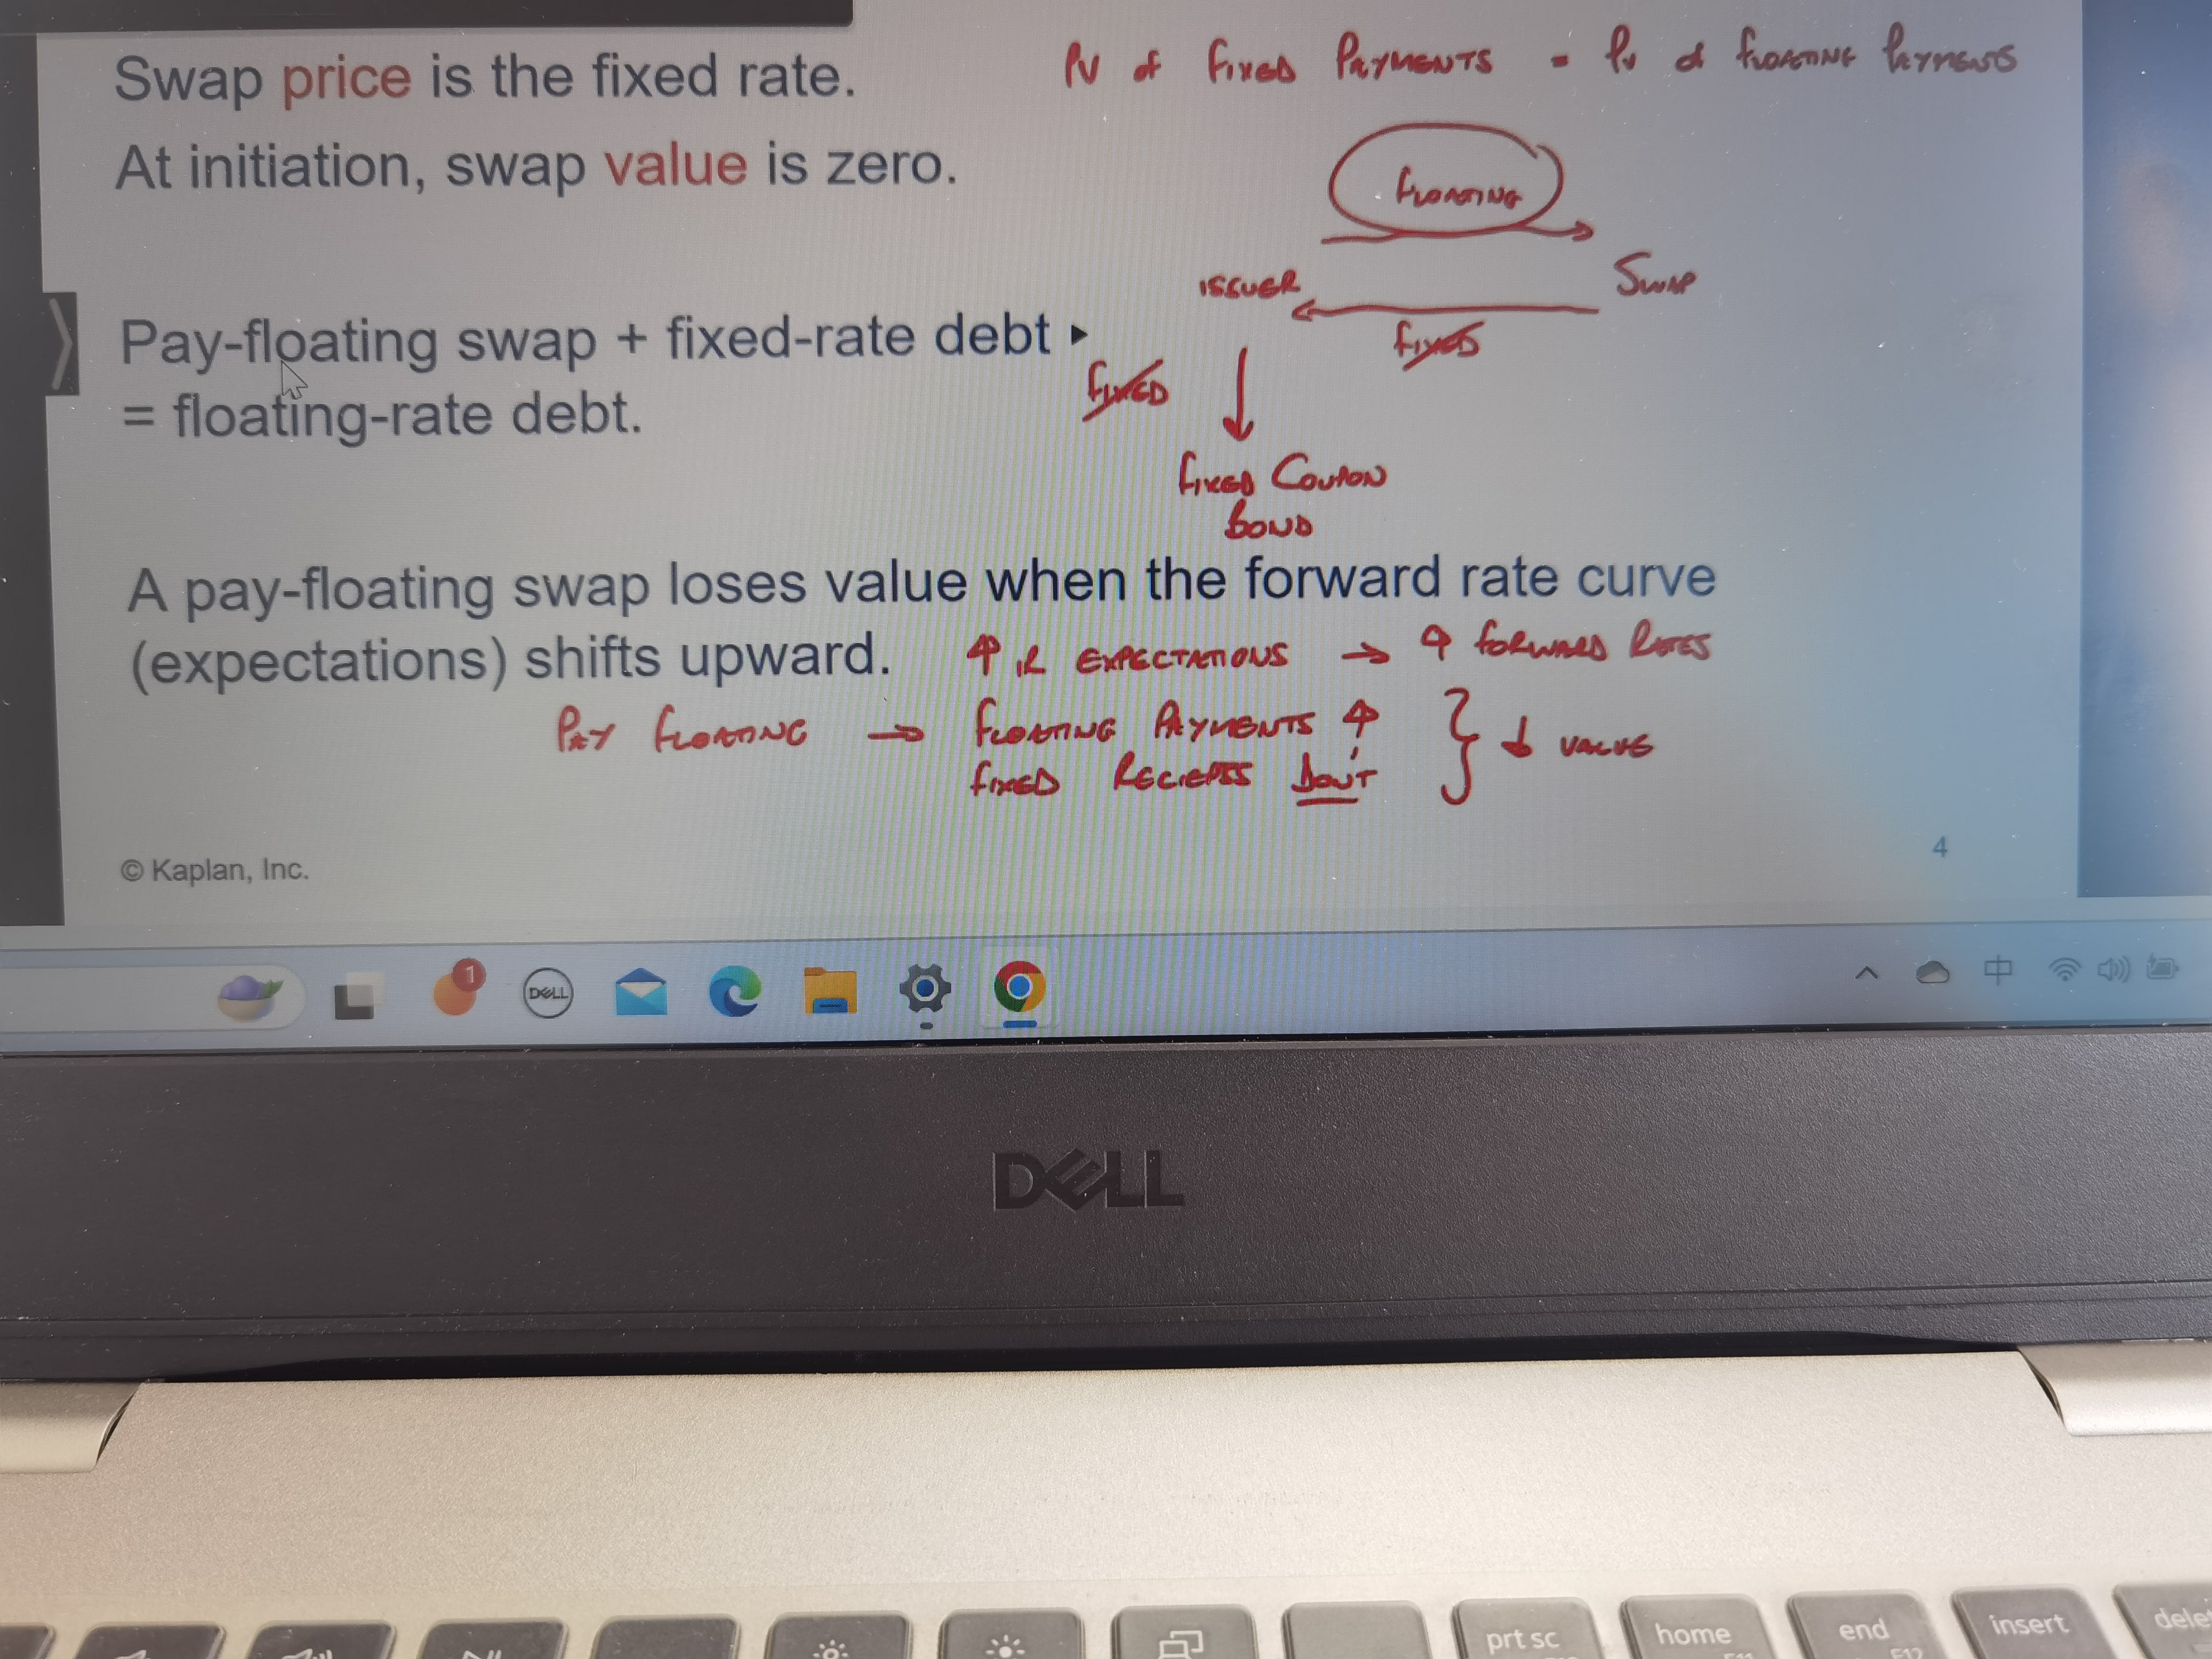 Swap price is the fixed rate.
PV of FIXED PAYMENTS = PV of FLOATING PAYMENTS
At initiation, swap value is zero.
FLOATING
ISSUER
SWAP
FIXED
Pay-floating swap + fixed-rate debt
= floating-rate debt.
FIXED
FIXED COUPON
BOND
A pay-floating swap loses value when the forward rate curve
(expectations) shifts upward.
↑ IR EXPECTATIONS → ↑ FORWARD RATES
PAY FLOATING → FLOATING PAYMENTS ↑
FIXED RECIEPTS DON'T
↓ VALUE
© Kaplan, Inc.
4
1
DELL
中
DELL
prt sc
home
F11
end
F12
insert